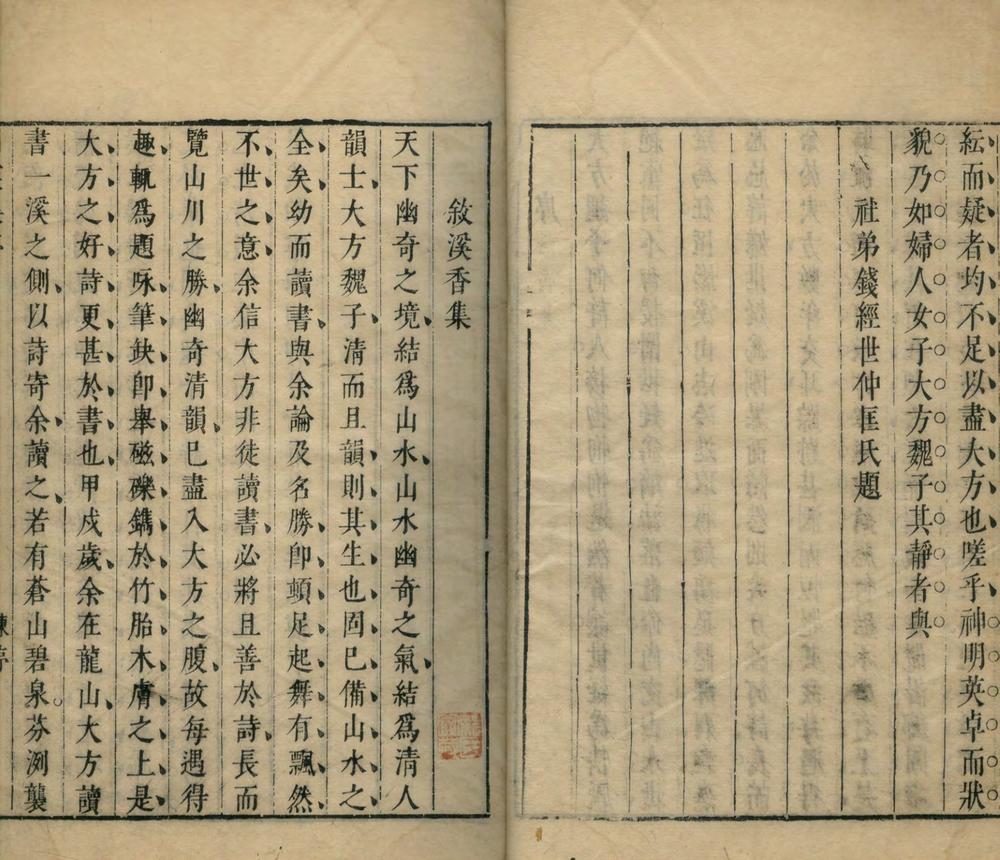 紜而疑者均不足以盡大方也嗟乎神明英卓而狀
貌乃如婦人女子大方魏子其靜者與
社弟錢經世仲匡氏題
敘溪香集
天下幽奇之境結爲山水山水幽奇之氣結爲清人
韻士大方魏子清而且韻則其生也固已備山水之
全矣幼而讀書與余論及名勝卽頓足起舞有飄然
不世之意余信大方非徒讀書必將且善於詩長而
覽山川之勝幽奇清韻已盡入大方之腹故每遇得
趣輒爲題咏筆缺卽舉磁礫鐫於竹胎木膚之上是
大方之好詩更甚於書也甲戍歲余在龍山大方讀
書一溪之側以詩寄余讀之若有蒼山碧泉芬冽襲